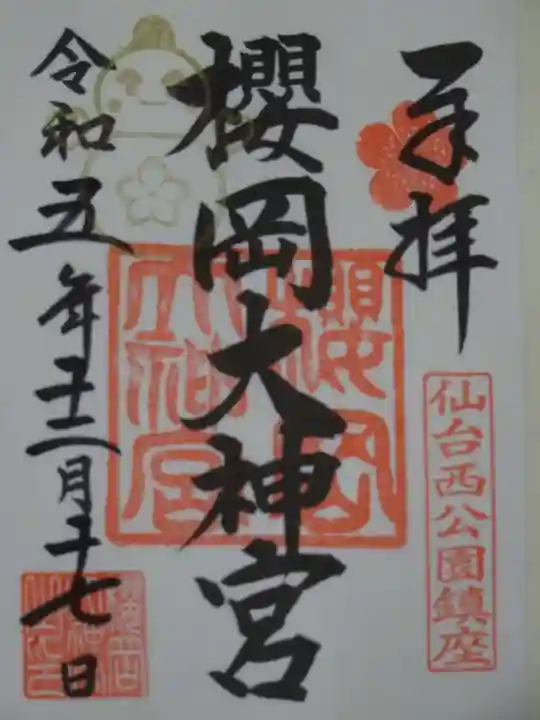 奉拝
仙台西公園鎮座
櫻岡大神宮
櫻岡
大神宮
令和五年十二月十七日